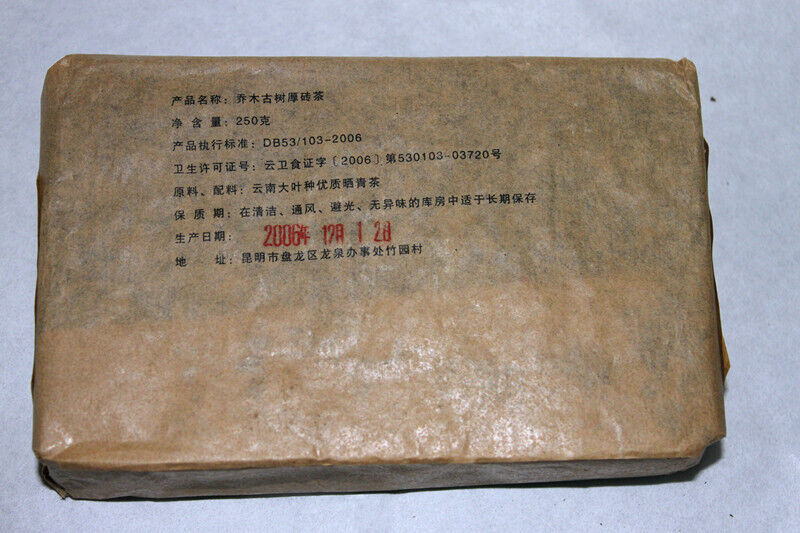 产品名称：乔木古树厚砖茶
净 含 量：250克
产品执行标准：DB53/103-2006
卫生许可证号：云卫食证字〔2006〕第530103-03720号
原料、配料：云南大叶种优质晒青茶
保 质 期：在清洁、通风、避光、无异味的库房中适于长期保存
生产日期：2006年 12月 1 2日
地 址：昆明市盘龙区龙泉办事处竹园村